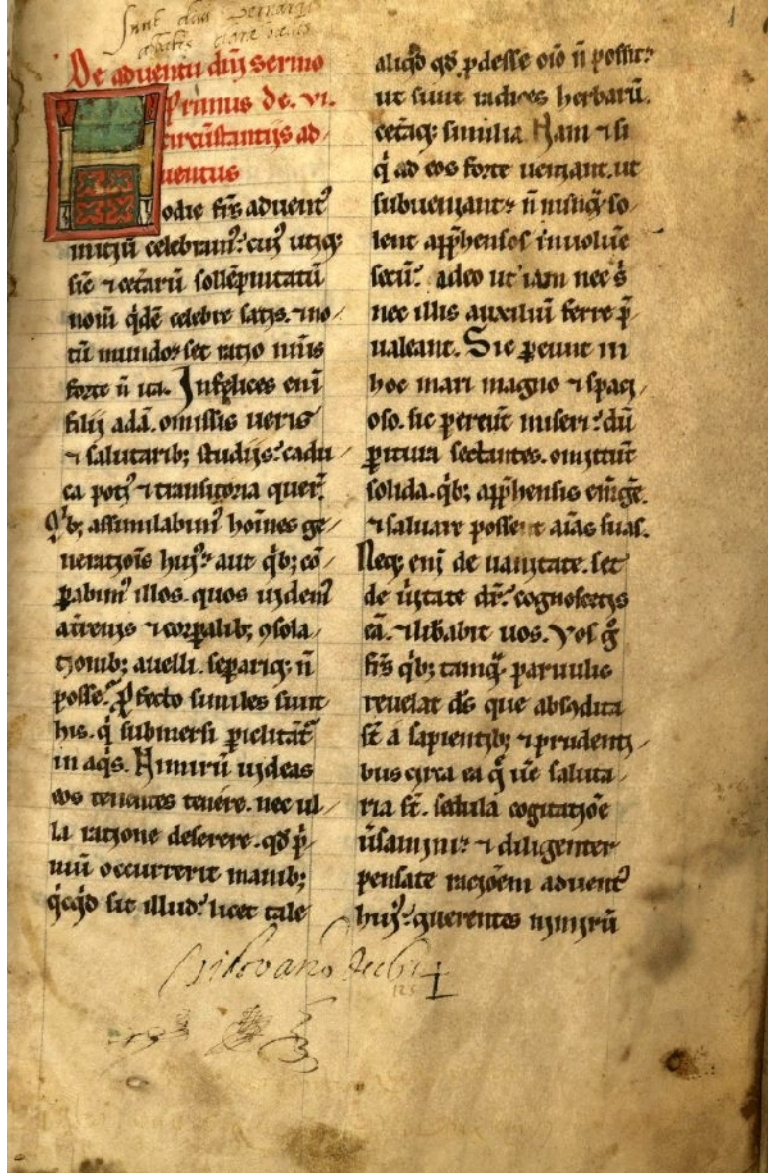 Sunt
De adventu dnī sermo
Primus de. vi.
circūstantiis ad-
ventus
Hodie frēs advent᷒
initiū celebram᷒. cui᷒ utiq;
sic̄ ⁊ cetarū sollēpnitatū
nom̄ qͥdē celebre satis. ⁊ no-
tū mundo. set ratio nōīs
forte n̄ ita. Infelices enī
filii adā. omissis veris
⁊ salutarib; studiis. cadu-
ca poti᷒ ⁊ transitoria querūt.
Qͥb; assimilabim᷒ hoīnes ge-
nerationis hui᷒. aut qͥb; cō-
ꝑabim᷒ illos. quos videm᷒
a t̄renis ⁊ corꝑalib; ꝯsola-
tionib; avelli. separiq; n̄
posse. ꝓfecto similes sunt
his. qͥ submersi ꝑiclitāt᷒
in aqͥs. Nimirū videas
eos tenentes tenere. nec ul-
la ratione deserere. qđ pͥ-
mū occurrerit manib;
qͥcqͥd sit illud. licet tale
aliqͥd qđ ꝓdesse oīo n̄ possit.
ut sunt radices herbarū.
cetaq; similia. Nam ⁊ si
qͥ ad eos forte veniant. ut
subveniant. n̄ nunqͣ so-
lent apphensos involūe
secū. adeo ut iam nec sͥ
nec illis auxiliū ferre p̄-
valeant. Sic ꝑeunt in
hoc mari magno ⁊ spaci-
oso. sic pereūt miseri. dū
ꝑitura sectantes. omittūt
solida. qͥb; apphensis em̄gē.
⁊ salvare possent aīas suas.
Neq; enī de vanitate. set
de v̄itate dr̄. cognoscetis
eā. ⁊ libābit vos. Vos gͦ
frēs qͥb; tamqͣ parvulis
revelat ds̄ que abscōdita
st̄ a sapientib; ⁊ prudenti-
bus circa ea qͥ ūe saluta-
ria st̄. sedula cogitatiōe
v̄samini. ⁊ diligenter
pensate ratiōem advent᷒
hui᷒. querentes nimirū
125